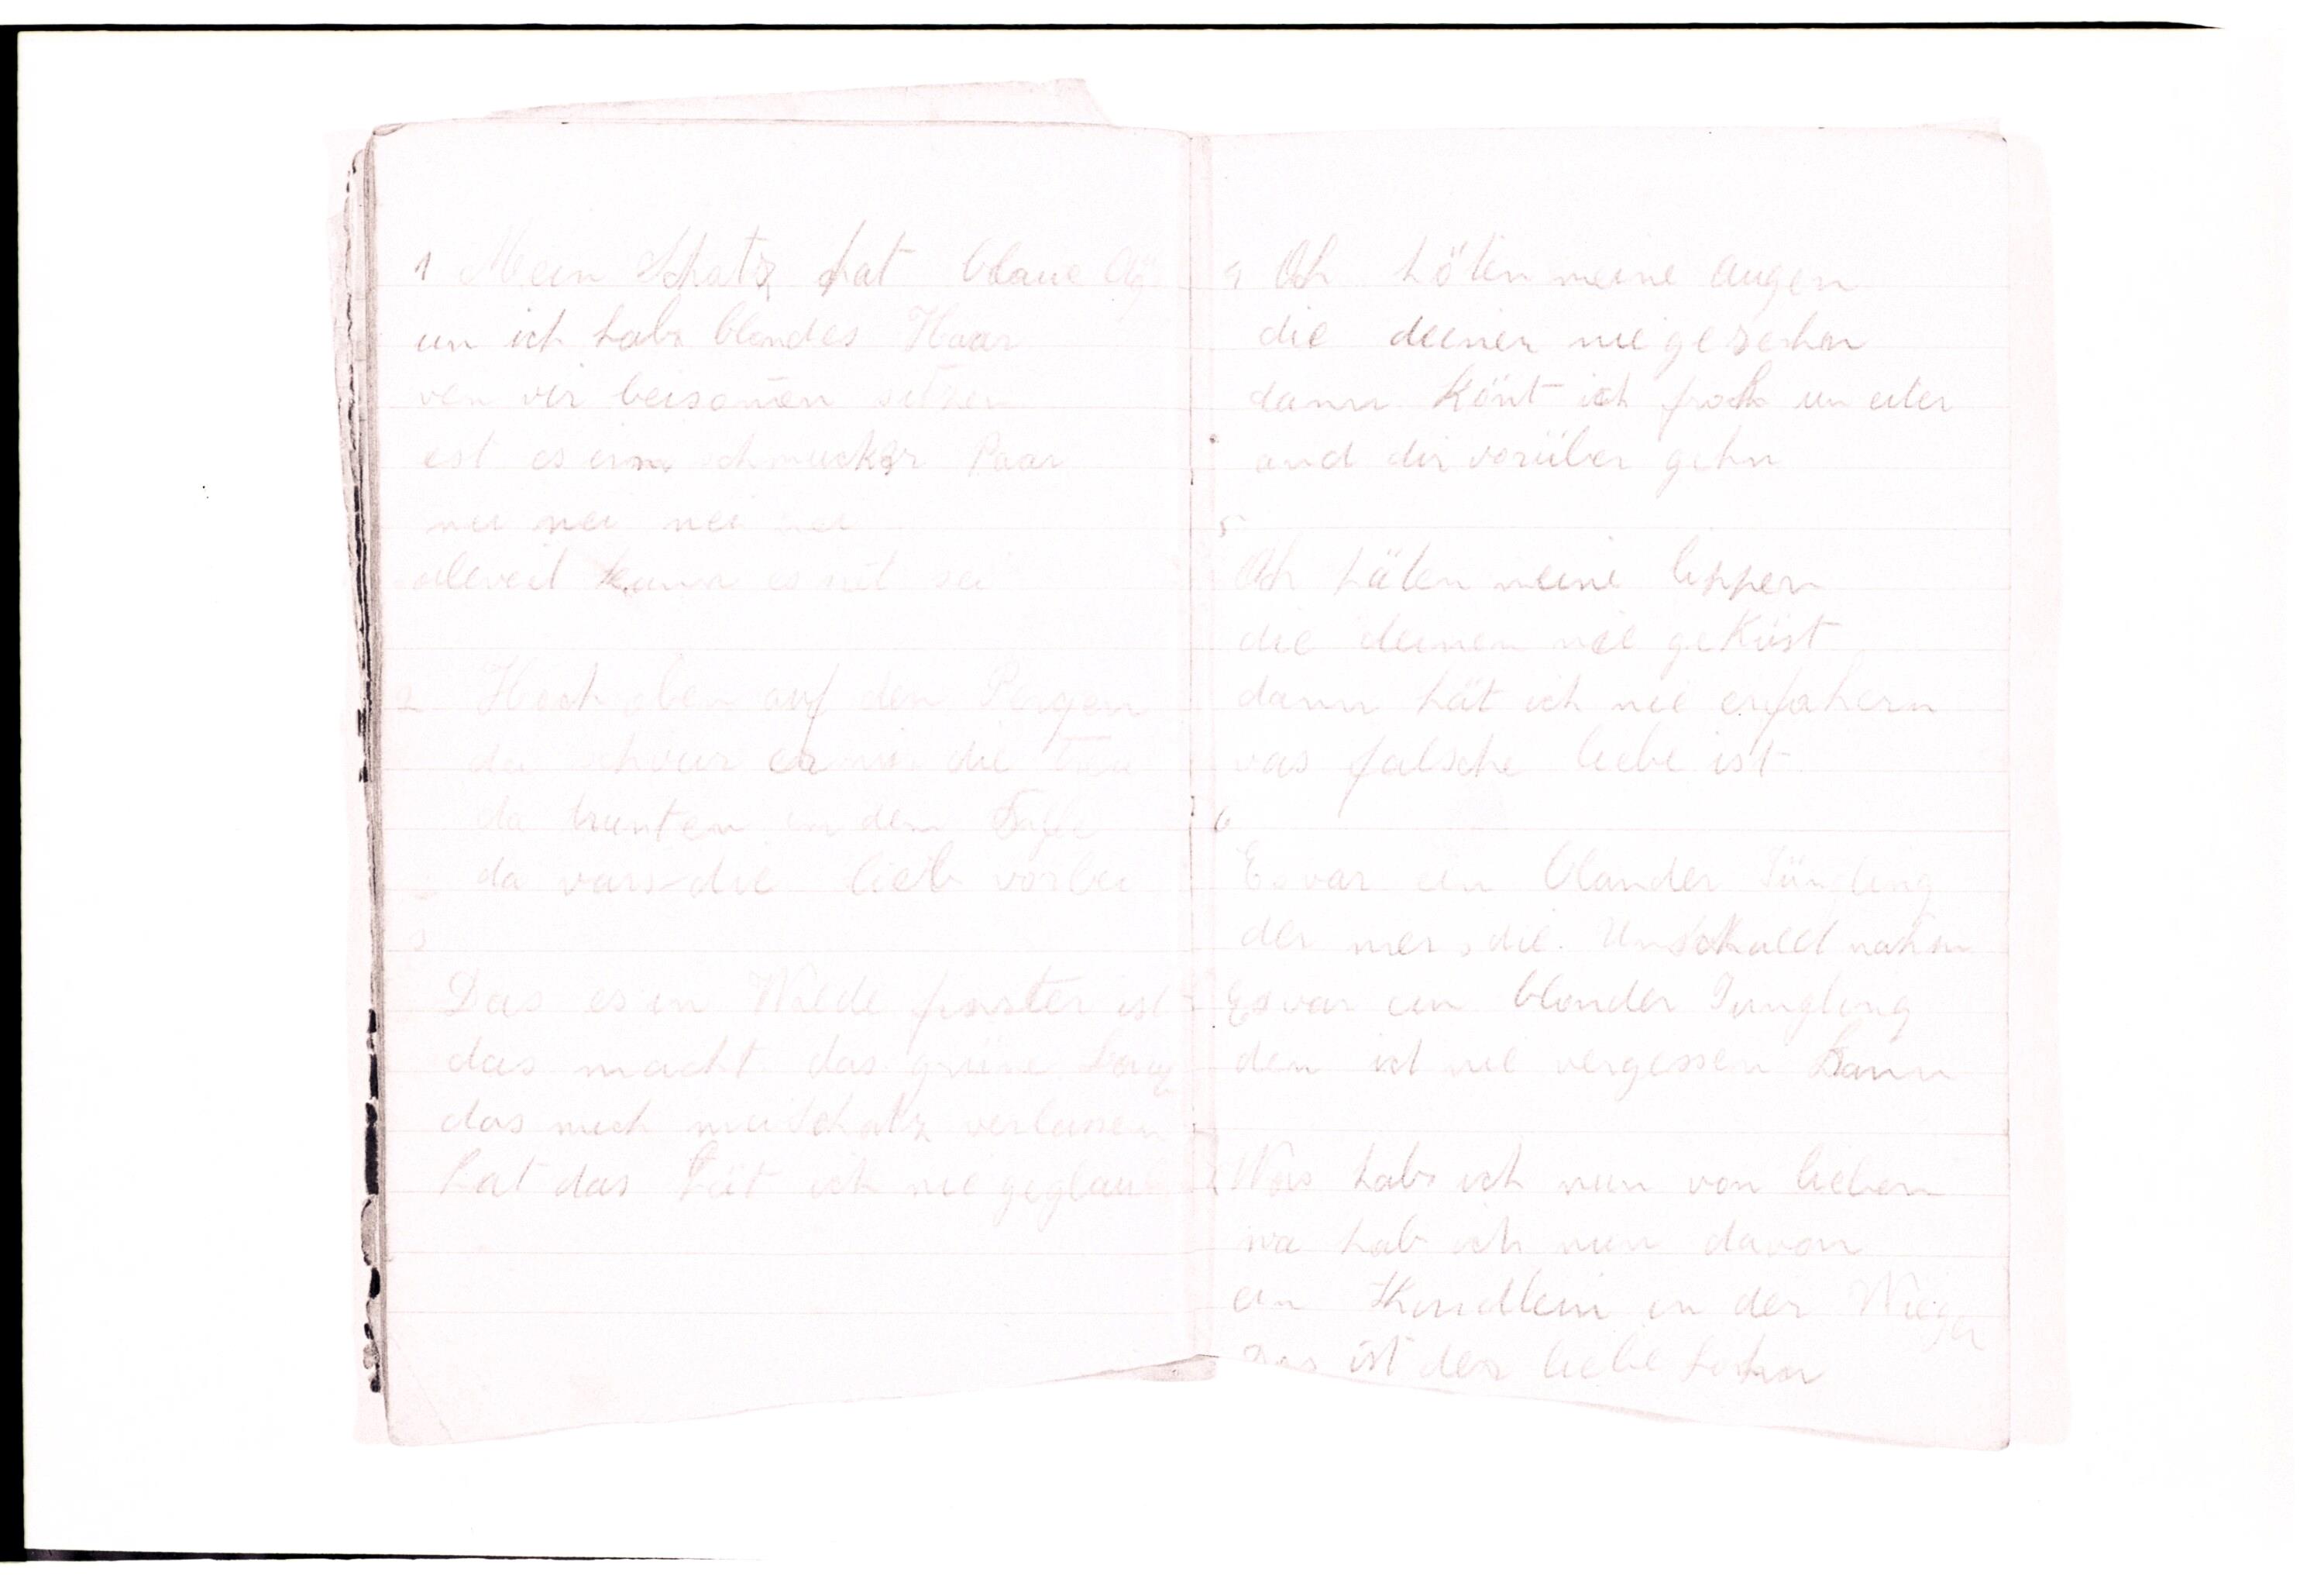 1 Mein Schatz hat blaue
un ich habs blondes Haar
ven vir beisamen sitzen
ist es eim schmucker Paar
nei nei nei nei
aleveil kann es net sei
2 Hoch oben auf den Pergen
da schvur er mir die
da trunten in dem
da vars die lieb vorbei
3
Das es in Walde finster ist
das macht das grüne
das mich mei Schatz verlassen
hat das hät ich nie geglaub
4 Och häten meine augen
die deinen nie gesehen
dann könt ich froh un
and dir vorüber gehn
5
Och häten meine lippen
die deinen nie geküst
dann hät ich nie erfahern
vas falsche liebe ist
6
Es var ein blander Jüngling
der mer die Unschuld nahm
Es var ein blonder Jungling
den ich nie vergessen kann
Was habs ich nun von lieben
wa hab ich nun davon
ein Kindlein in der Wiegen
Das ist der liebe Lohn